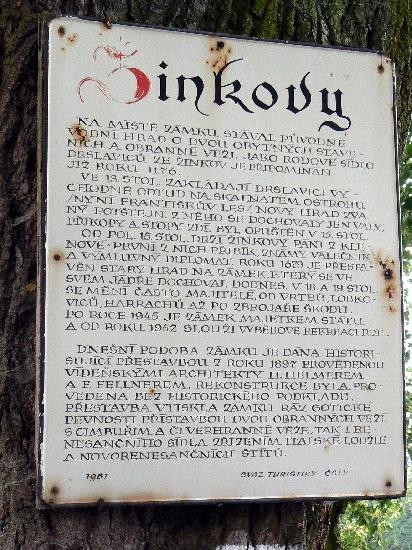 Žinkovy
NA MÍSTĚ ZÁMKU STÁVAL PŮVODNĚ
VODNÍ HRAD O DVOU OBYTNÝCH STAVE-
NÍCH A OBRANNÉ VĚŽI. JAKO RODOVÉ SÍDLO
DRSLAVICŮ ZE ŽINKOV JE PŘIPOMÍNÁN
JIŽ ROKU 1176.
VE 13. STOL. ZAKLÁDAJÍ DRSLAVICI VÝ-
CHODNĚ ODTUD NA SKALNATÉM OSTROHU
/NYNÍ FRANTIŠKŮV LES/ NOVÝ HRAD ZVA-
NÝ POTŠTEJN. Z NĚHO SE DOCHOVALY JEN VALY,
PŘÍKOPY A STOPY ZDÍ. BYL OPUŠTĚN V 15. STOL.
OD POL. 15. STOL. DRŽÍ ŽINKOVY PÁNI Z KLE-
NOVÉ - PRVNÍ Z NICH PŘIBÍK, ZNÁMÝ VÁLEČNÍK
A VÝMLUVNÝ DIPLOMAT. ROKU 1679 JE PŘESTA-
VĚN STARÝ HRAD NA ZÁMEK, KTERÝ SE VE
SVÉM JÁDŘE DOCHOVAL DODNES. V 18. A 19. STOL.
SE MĚNÍ ČASTO MAJITELÉ, OD VRTBŮ, LOBKO-
VICŮ, HARRACHŮ AŽ PO ZBROJAŘE ŠKODU.
PO ROCE 1945 JE ZÁMEK MAJETKEM STÁTU
A OD ROKU 1952 SLOUŽÍ VÝBĚROVÉ REKREACI ROH.
DNEŠNÍ PODOBA ZÁMKU JE DÁNA HISTORI-
SUJÍCÍ PŘESTAVBOU Z ROKU 1897 PROVEDENOU
VÍDEŇSKÝMI ARCHITEKTY H. HELMEREM
A F. FELLNEREM. REKONSTRUKCE BYLA PRO-
VEDENA BEZ HISTORICKÉHO PODKLADU.
PŘESTAVBA VTISKLA ZÁMKU RÁZ GOTICKÉ
PEVNOSTI PŘÍSTAVBOU DVOU OBRANNÝCH VĚŽÍ
S CIMBUŘÍM A ČTVERHRANNÉ VĚŽE, TAK I RE-
NESANČNÍHO SÍDLA ZŘÍZENÍM ITALSKÉ LODŽIE
A NOVORENESANČNÍCH ŠTÍTŮ.
1981 SVAZ TURISTIKY ČSTV